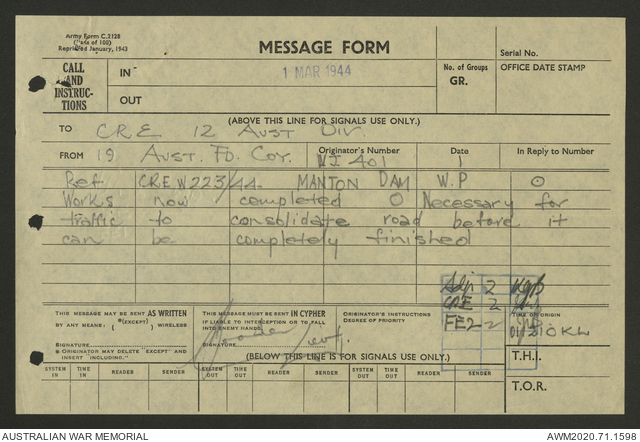 Army Form C.2128
(Pads of 100)
Reprinted January, 1943
MESSAGE FORM
Serial No.
CALL AND INSTRUCTIONS
IN
1 MAR 1944
No. of Groups
GR.
OFFICE DATE STAMP
OUT
(ABOVE THIS LINE FOR SIGNALS USE ONLY.)
TO CRE 12 Aust Div.
FROM 19 Aust. Fd. Coy.
Originator's Number
401
Date
1
In Reply to Number
Ref CRE W223/44 MANTON DAM W.P O
Works now completed O Necessary for
traffic to consolidate road before it
can be completely finished
Adjt 2
CRE 2
FE2 2
THIS MESSAGE MAY BE SENT AS WRITTEN
BY ANY MEANS: { *(EXCEPT) } WIRELESS
SIGNATURE
* ORIGINATOR MAY DELETE "EXCEPT" AND
INSERT "INCLUDING."
THIS MESSAGE MUST BE SENT IN CYPHER
IF LIABLE TO INTERCEPTION OR TO FALL
INTO ENEMY HANDS.
SIGNATURE
ORIGINATOR'S INSTRUCTIONS
DEGREE OF PRIORITY
TIME OF ORIGIN
(BELOW THIS LINE IS FOR SIGNALS USE ONLY.)
T.H.I.
SYSTEM IN
TIME IN
READER
SENDER
SYSTEM OUT
TIME OUT
READER
SENDER
SYSTEM OUT
TIME OUT
READER
SENDER
T.O.R.
AUSTRALIAN WAR MEMORIAL
AWM2020.71.1598